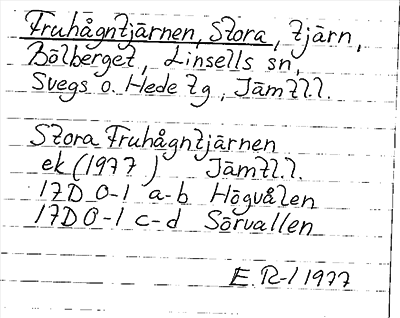 Fruhågntjärnen, Stora, tjärn,
Bölberget, Linsells sn,
Svegs o. Hede tg, Jämtl.l.
Stora Fruhågntjärnen
ek (1977) Jämtl.l.
17D 0-1 a-b Högvålen
17D 0-1 c-d Sörvallen
E. R-l 1977